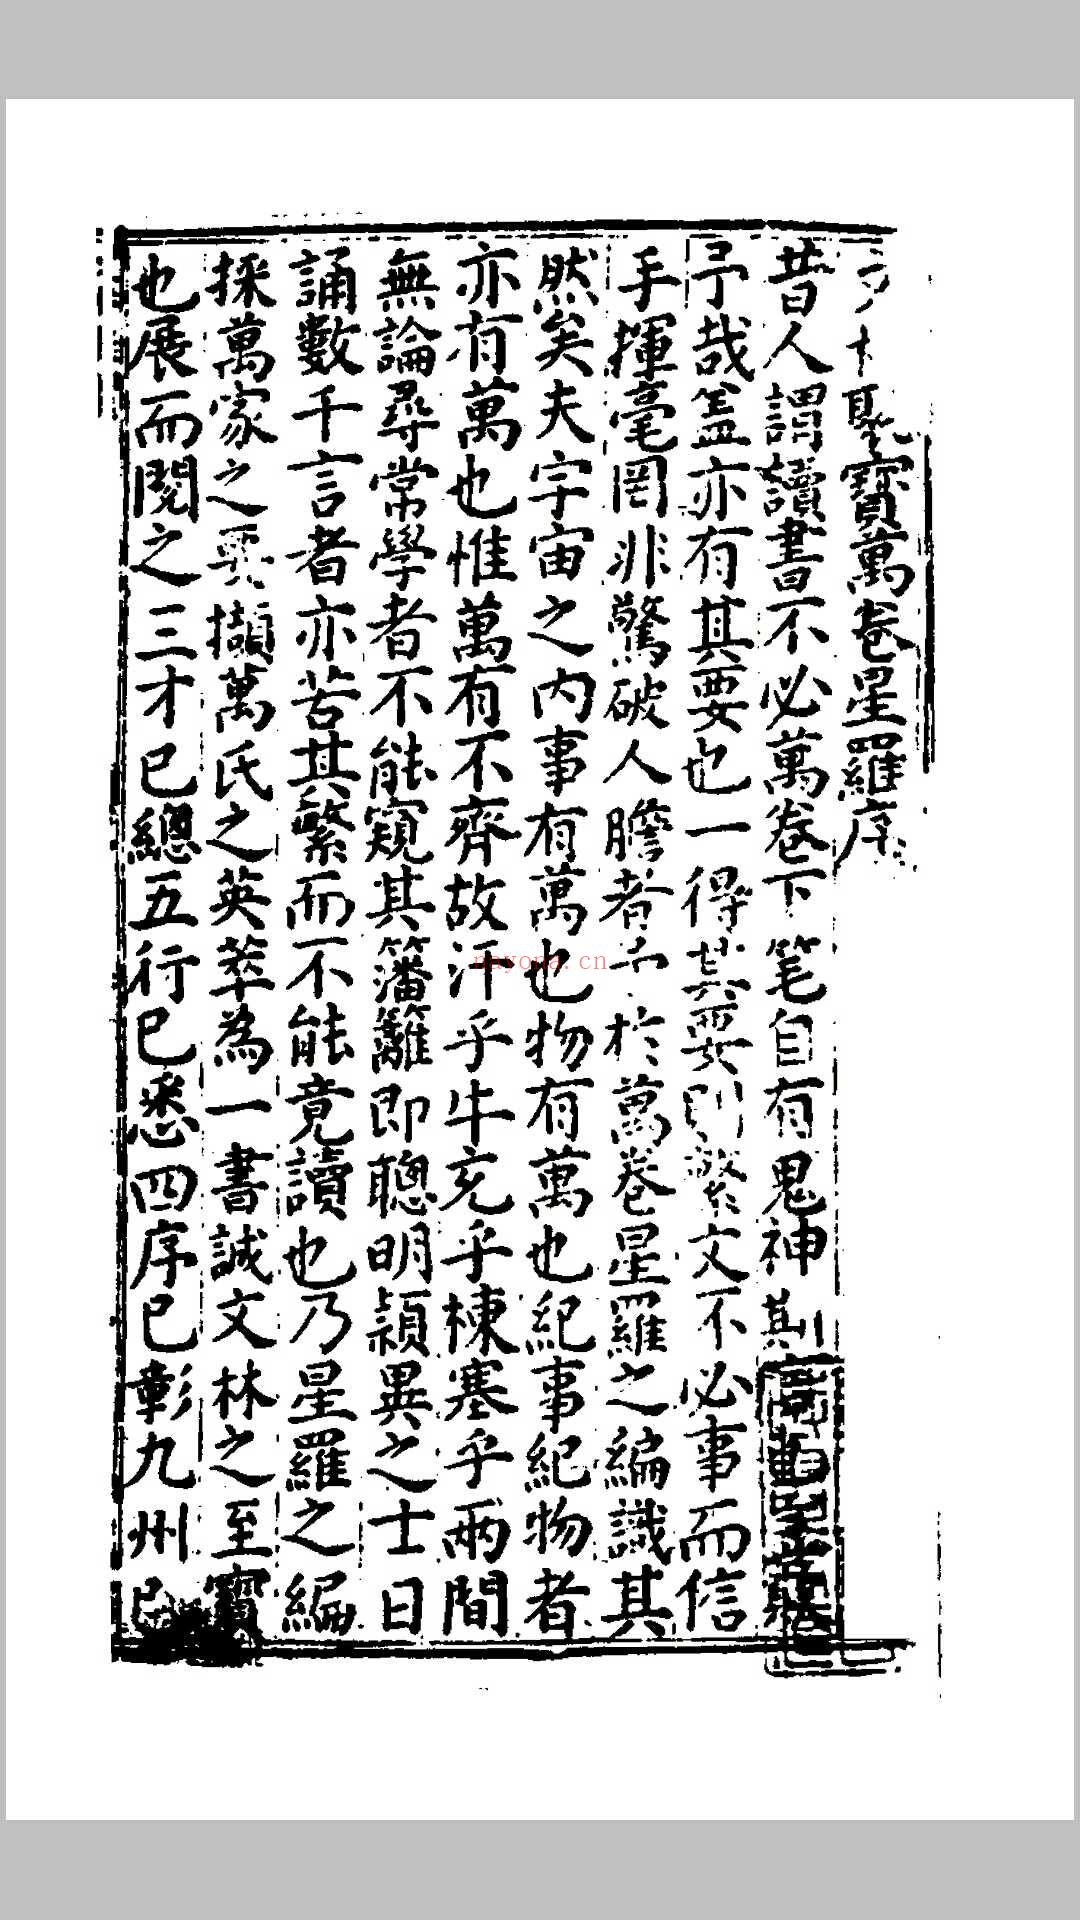 林聚寶萬卷星羅序
昔人謂讀書不必萬卷下笔自有鬼神其
予哉盖亦有其要也一得其要則繁文不必事而信
手揮毫罔非驚破人膽者予於萬卷星羅之編識其
然矣夫宇宙之内事有萬也物有萬也紀事紀物者
亦有萬也惟萬有不齊故汗乎牛充乎棟塞乎兩間
無論尋常學者不能窺其籓籬即聰明頴異之士日
誦數千言者亦苦其繁而不能竟讀也乃星羅之編
採萬家之要擷萬氏之英萃為一書誠文林之至寶
也展而閱之三才已總五行已悉四序已彰九州已
nayona.cn